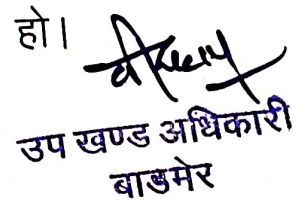 हो।
उप खण्ड अधिकारी
बाडमेर